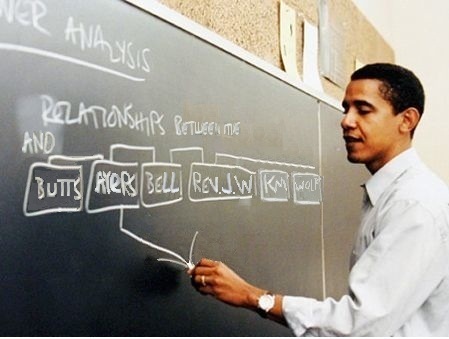 WER ANALYSIS
RELATIONSHIPS BETWEEN ME
AND
BUTTS AYERS BELL REV.J.W WOLF